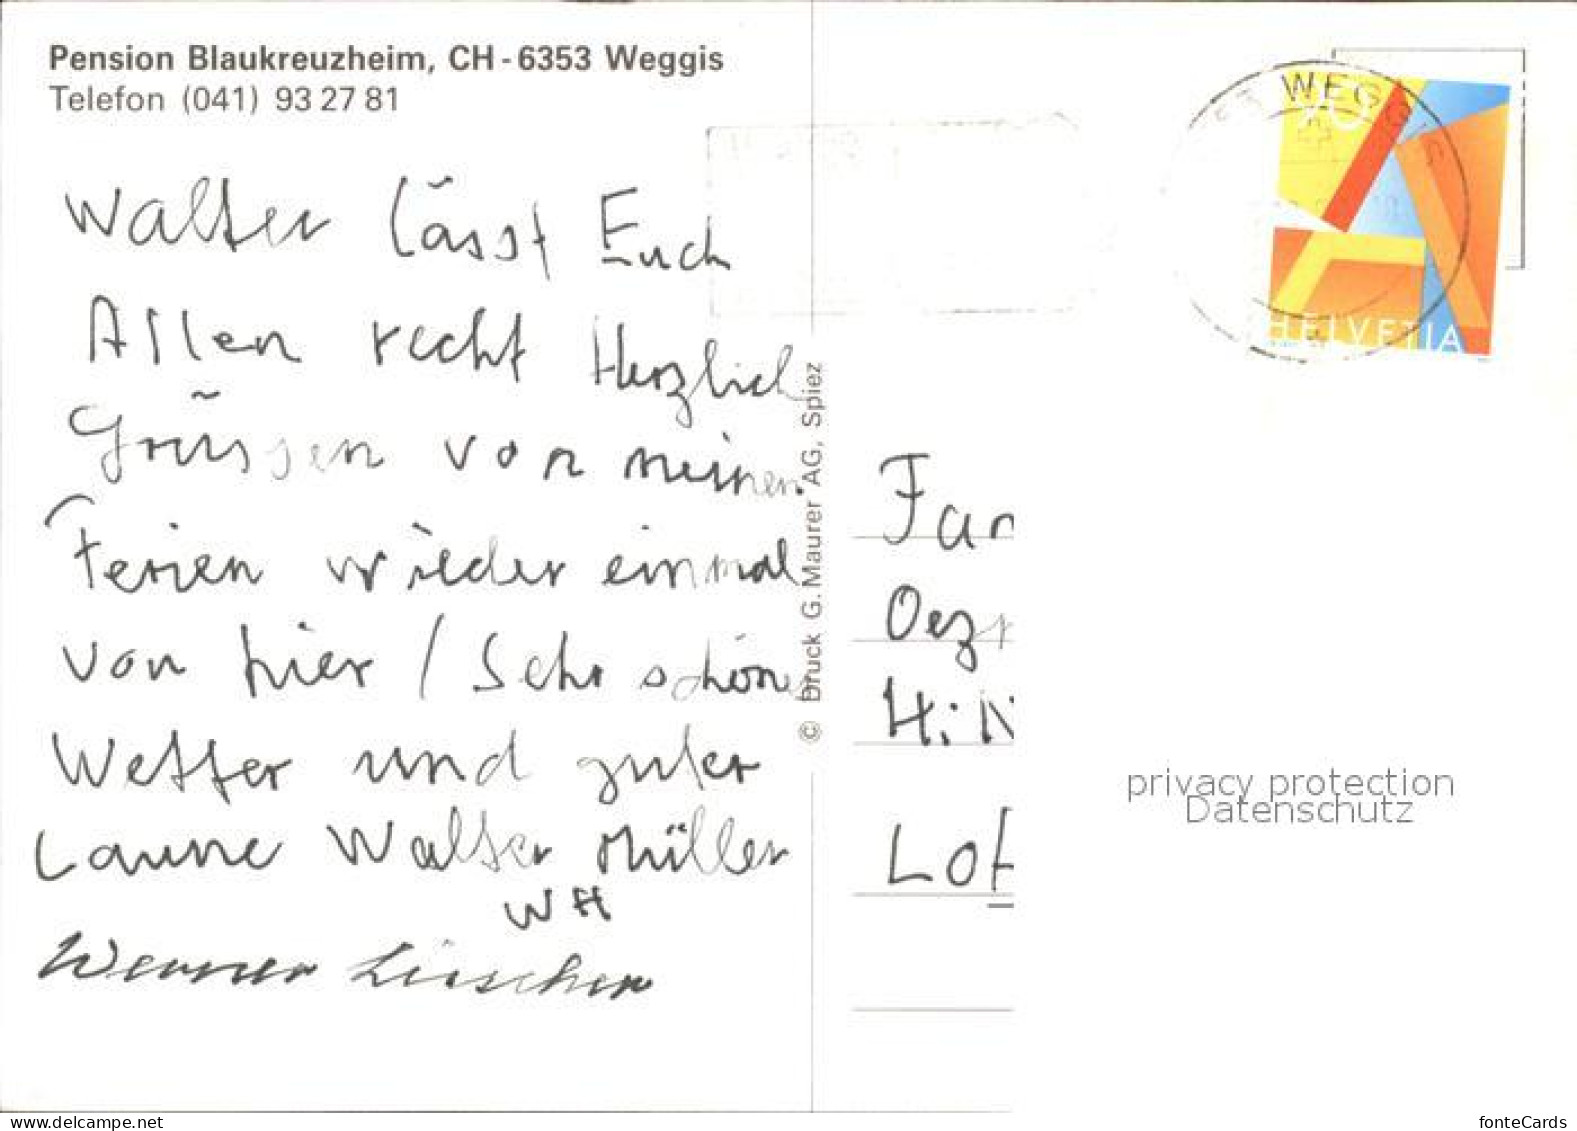 Pension Blaukreuzheim, CH-6353 Weggis
Telefon (041) 93 27 81
Walter lässt Euch
Allen recht Herzlich
Grüssen von meinen
Ferien wieder einmal
von hier / Sehr schönes
Wetter und guter
Laune Walter Müller
WH
Werner Lüscher
© Druck G. Maurer AG, Spiez
WEGGIS
90
A
HELVETIA
Fam
Oez
Hil
Lot
privacy protection
Datenschutz
www.delcampe.net
fonteCards